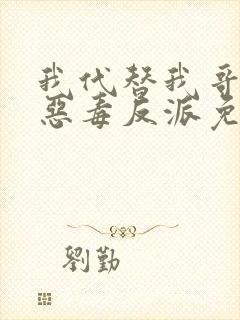 我代替我哥
惡毒反派免
劉勤